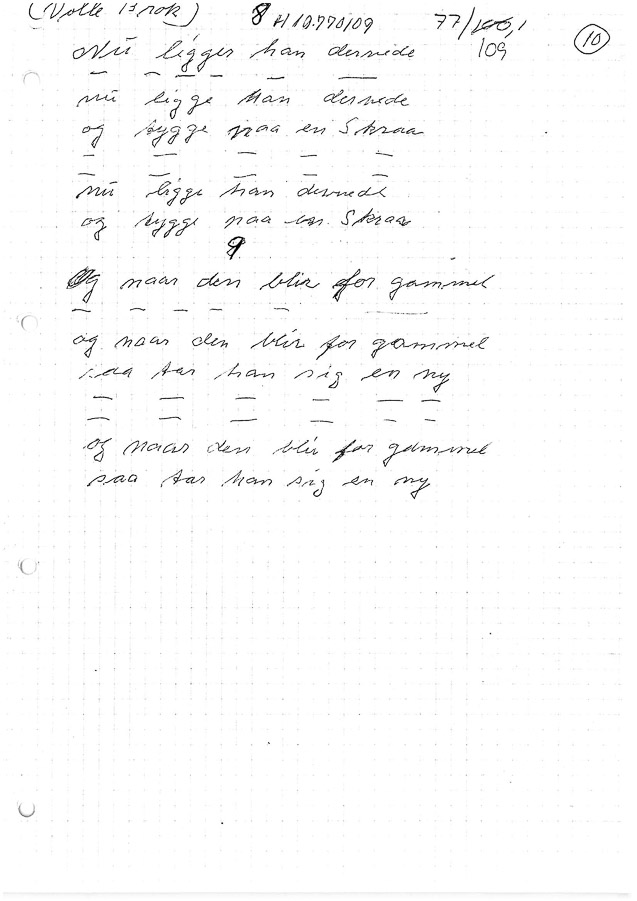 (Volle Brok) 8 H 10.770/09 77/100,1 10
109
Nu ligger han dernede
nu ligge han dernede
og tygge paa en Skraa
nu ligge han dernede
og tygge paa en Skraa
9
Og naar den blir for gammel
og naar den blir for gammel
saa tar han sig en ny
og naar den blir for gammel
saa tar han sig en ny